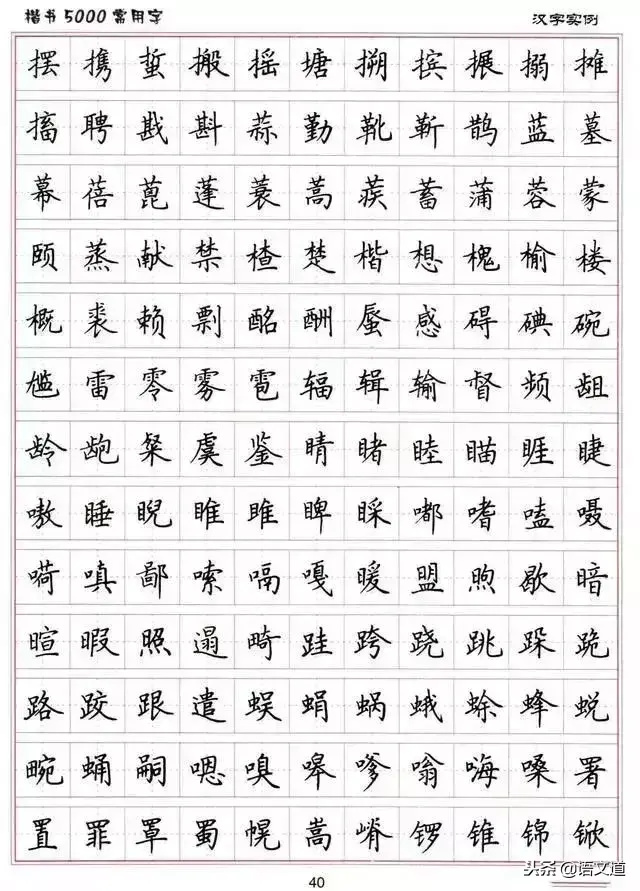 楷书5000常用字 汉字实例
摆 携 蜇 搬 摇 搪 搠 摈 搌 搦 摊
搐 聘 戡 斟 蒜 勤 靴 靳 鹊 蓝 墓
幕 蓓 蓖 蓬 蓑 蒿 蒺 蓄 蒲 蓉 蒙
颐 蒸 献 禁 楂 楚 楷 想 槐 榆 楼
概 裘 赖 剽 酩 酬 蜃 感 碍 碘 碗
尴 雷 零 雾 雹 辐 辑 输 督 频 龃
龄 龅 粲 虞 鉴 睛 睹 睦 瞄 睚 睫
嗷 睡 睨 睢 雎 睥 睬 嘟 嗜 嗑 嗫
嗬 嗔 鄙 嗦 嗝 嘎 暖 盟 煦 歇 暗
暄 暇 照 遢 畸 跬 跨 跷 跳 跺 跪
路 跤 跟 遣 蜈 蜎 蜗 蛾 蜍 蜂 蜕
畹 蛹 嗣 嗯 嗅 嗥 嗲 嗡 嗨 嗓 署
置 罪 罩 蜀 幌 嵩 嵴 锣 锥 锦 锨
40
头条@语文道